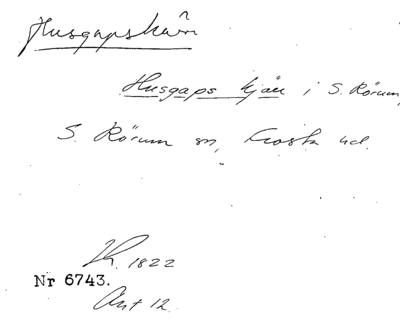 Husgapskärr
Husgaps kjär i S. Rörum,
S. Rörum sn, Frosta hd.
1822
Nr 6743.
Akt 12.